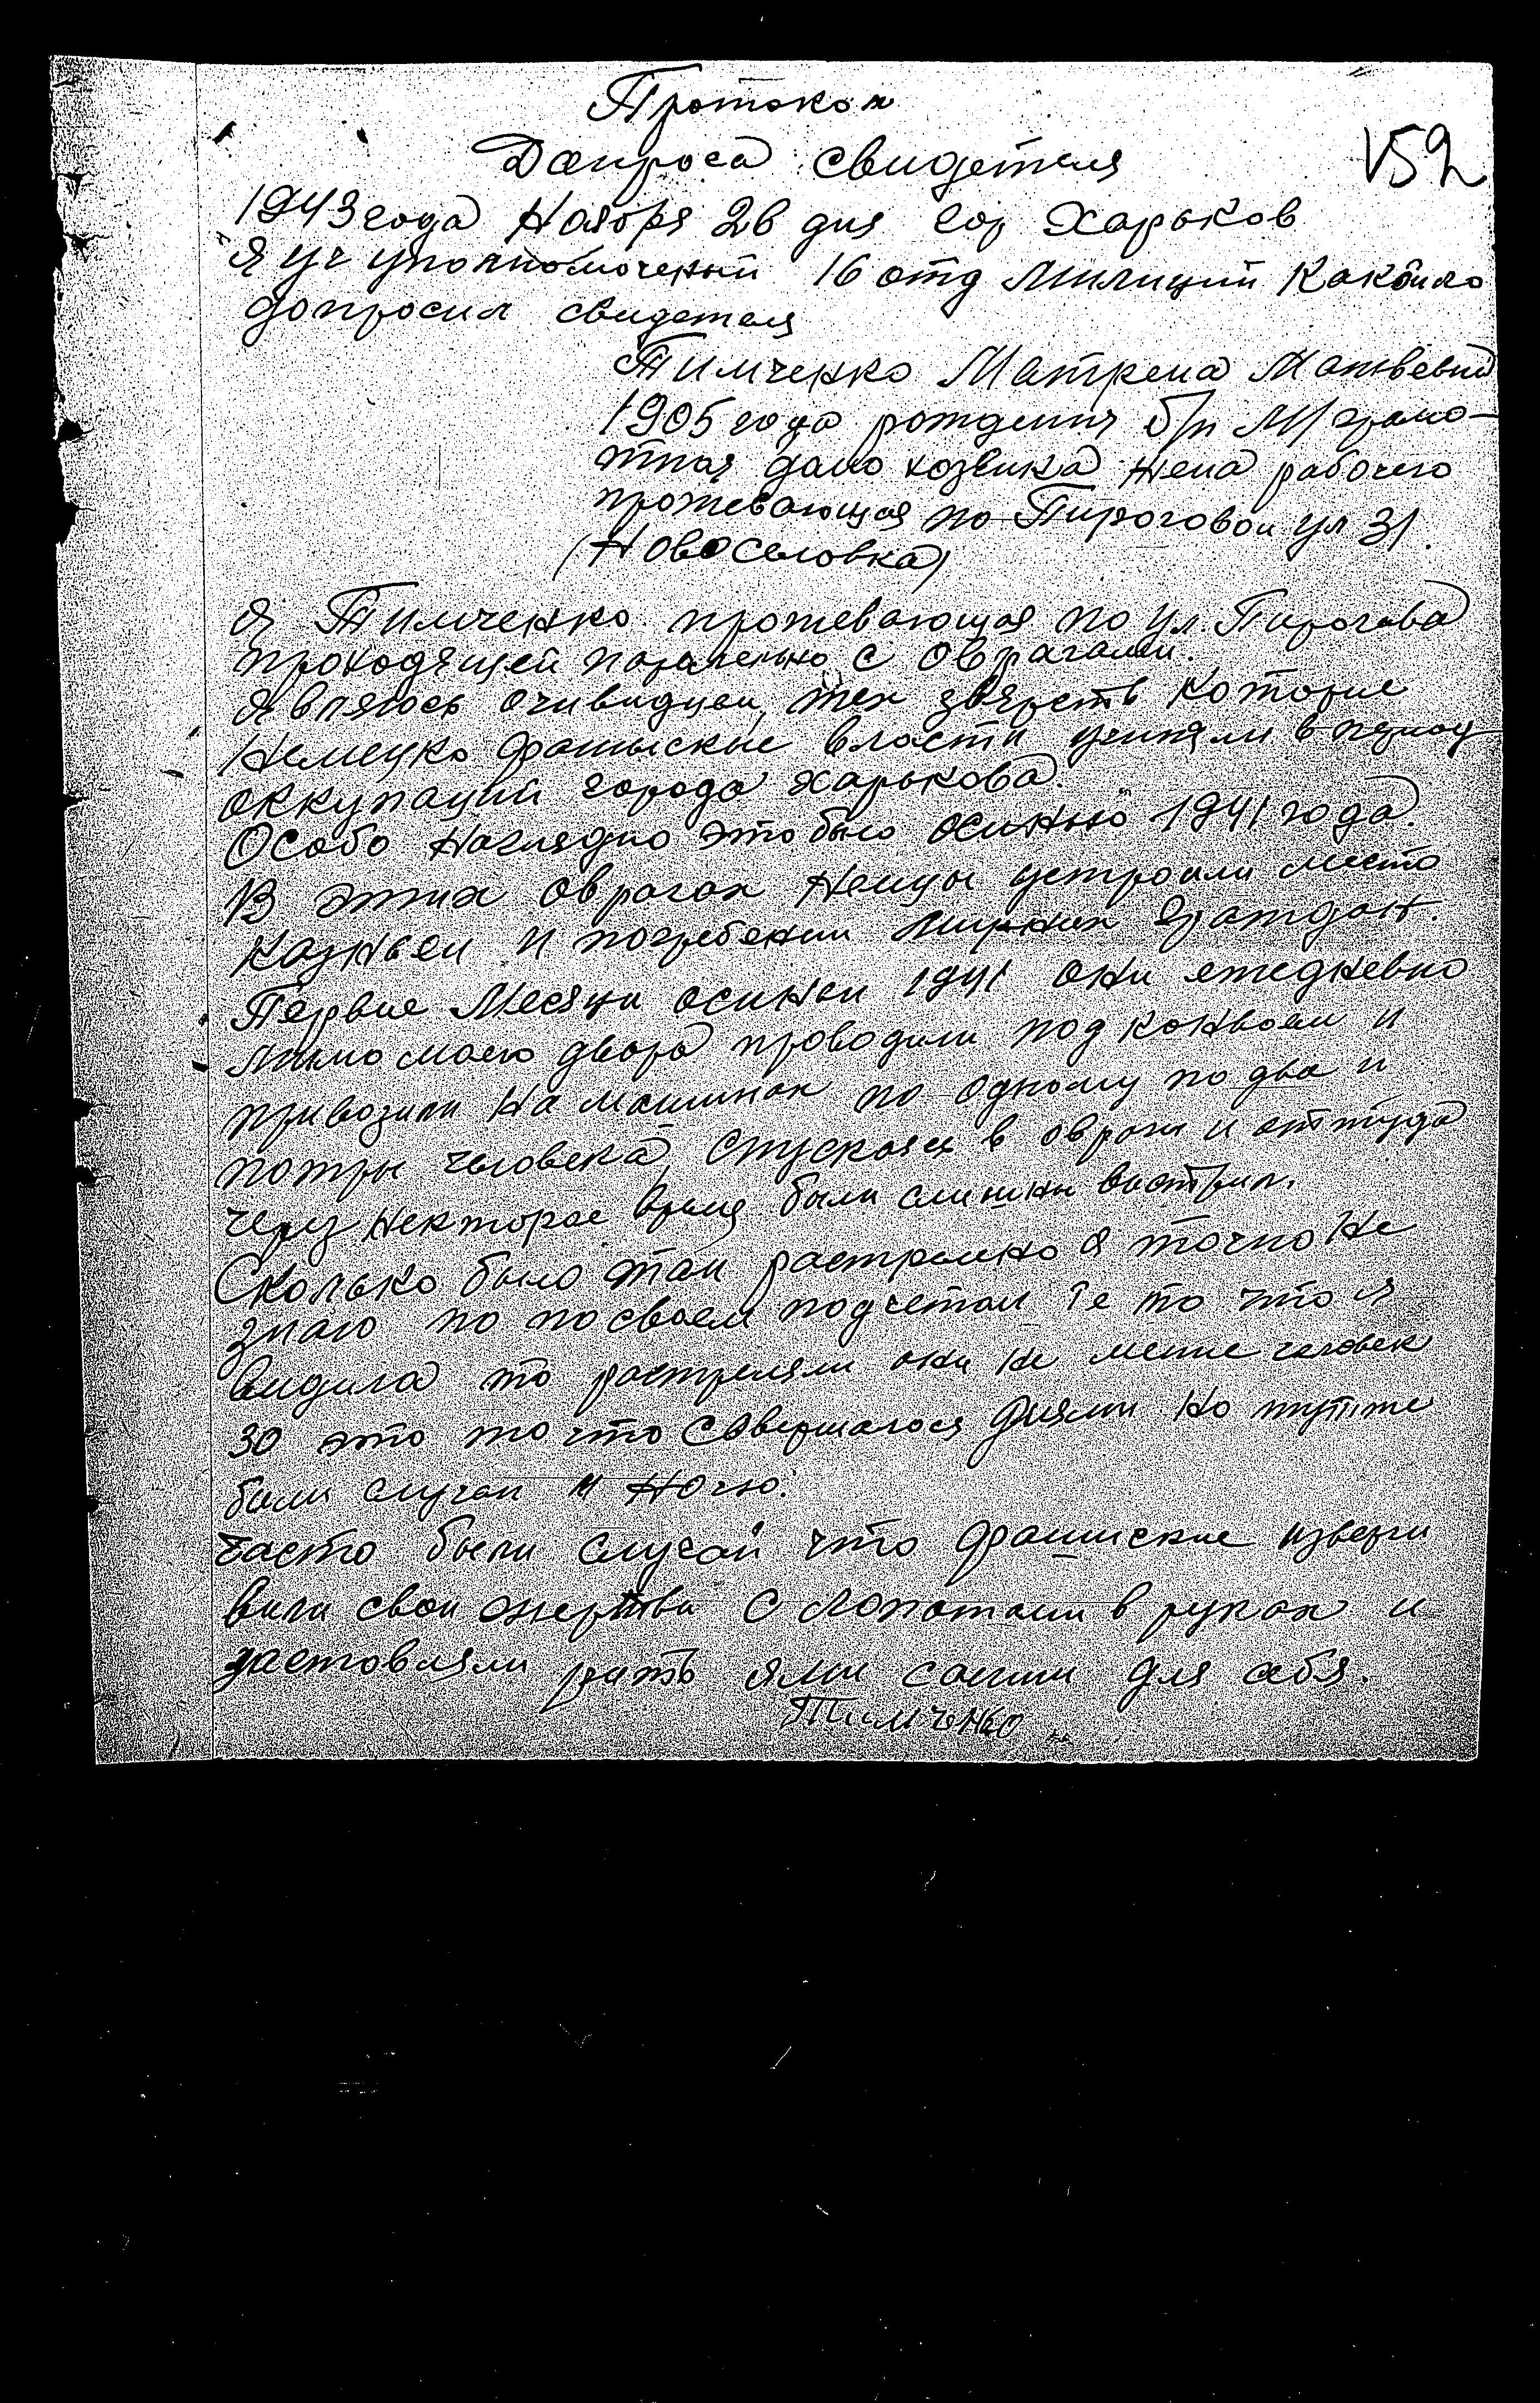 Протокол
Допроса свидетеля
152
1943 года Ноября 26 дня гор Харьков
Я уч уполномоченый 16 отд Милиции
допросил свидетеля
Тимченко Матрена Матвевна
1905 года рождения б/п М/грамо-
тная домо хозвика жена рабочего
прожевающая по Пироговои ул 31.
(Новоселовка)
Я Тимченко прожевающая по ул. Пирогова
проходящей паралельно с оврагами.
Являюсь очивидцем, тех зверств которые
Немецко фашыские власти учиняли в период
оккупаций города Харькова.
Особо наглядно это было осинью 1941 года.
В этих оврагах Немцы устроили место
казньеи и погребении мирних граждан.
Первые Месяцы осинеи 1941 они ежедневно
мимо моего двора проводили под конвоем и
привозили на машинах по одному по два и
потры человека, Спускаясь в овраги и оттуда
через некторое время были слишны вистрил.
Сколько было там растреляно я точно не
знаю но по своем подчетам те то что я
видила то растреляли они не менне человек
30 это то что Совершалося днями но тутже
были случаи и Ночю.
часто были случаи что фашиские изверги
вили свои жертви с лопатами в руках и
заставляли рить ями самии для себя.
Тимченко